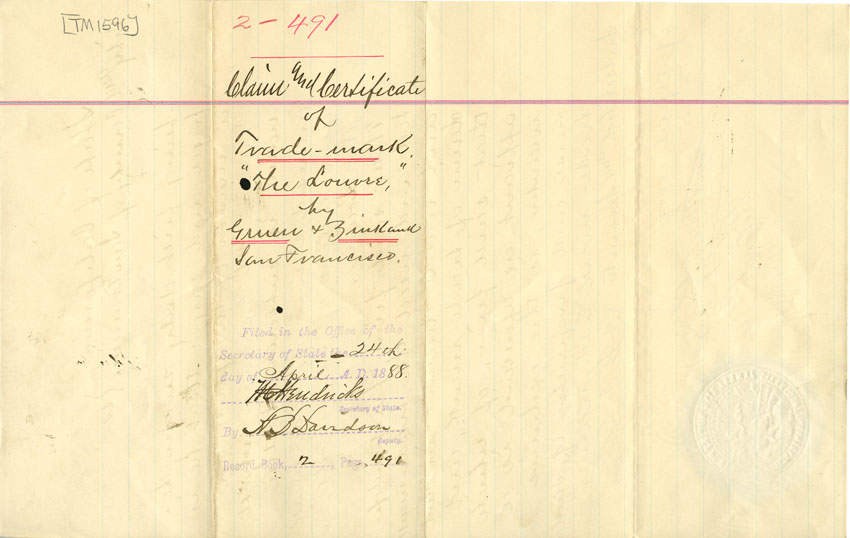 [TM1596]
2-491
Claim and Certificate
of
Trade-mark.
"The Louvre,"
by
Gruen & Zinkand
San Francisco.
Filed in the Office of the
Secretary of State the 24th
day of April A.D. 1888.
W C Hendricks
Secretary of State.
By A B Davidson
Deputy.
Record Book, 2, Page, 491